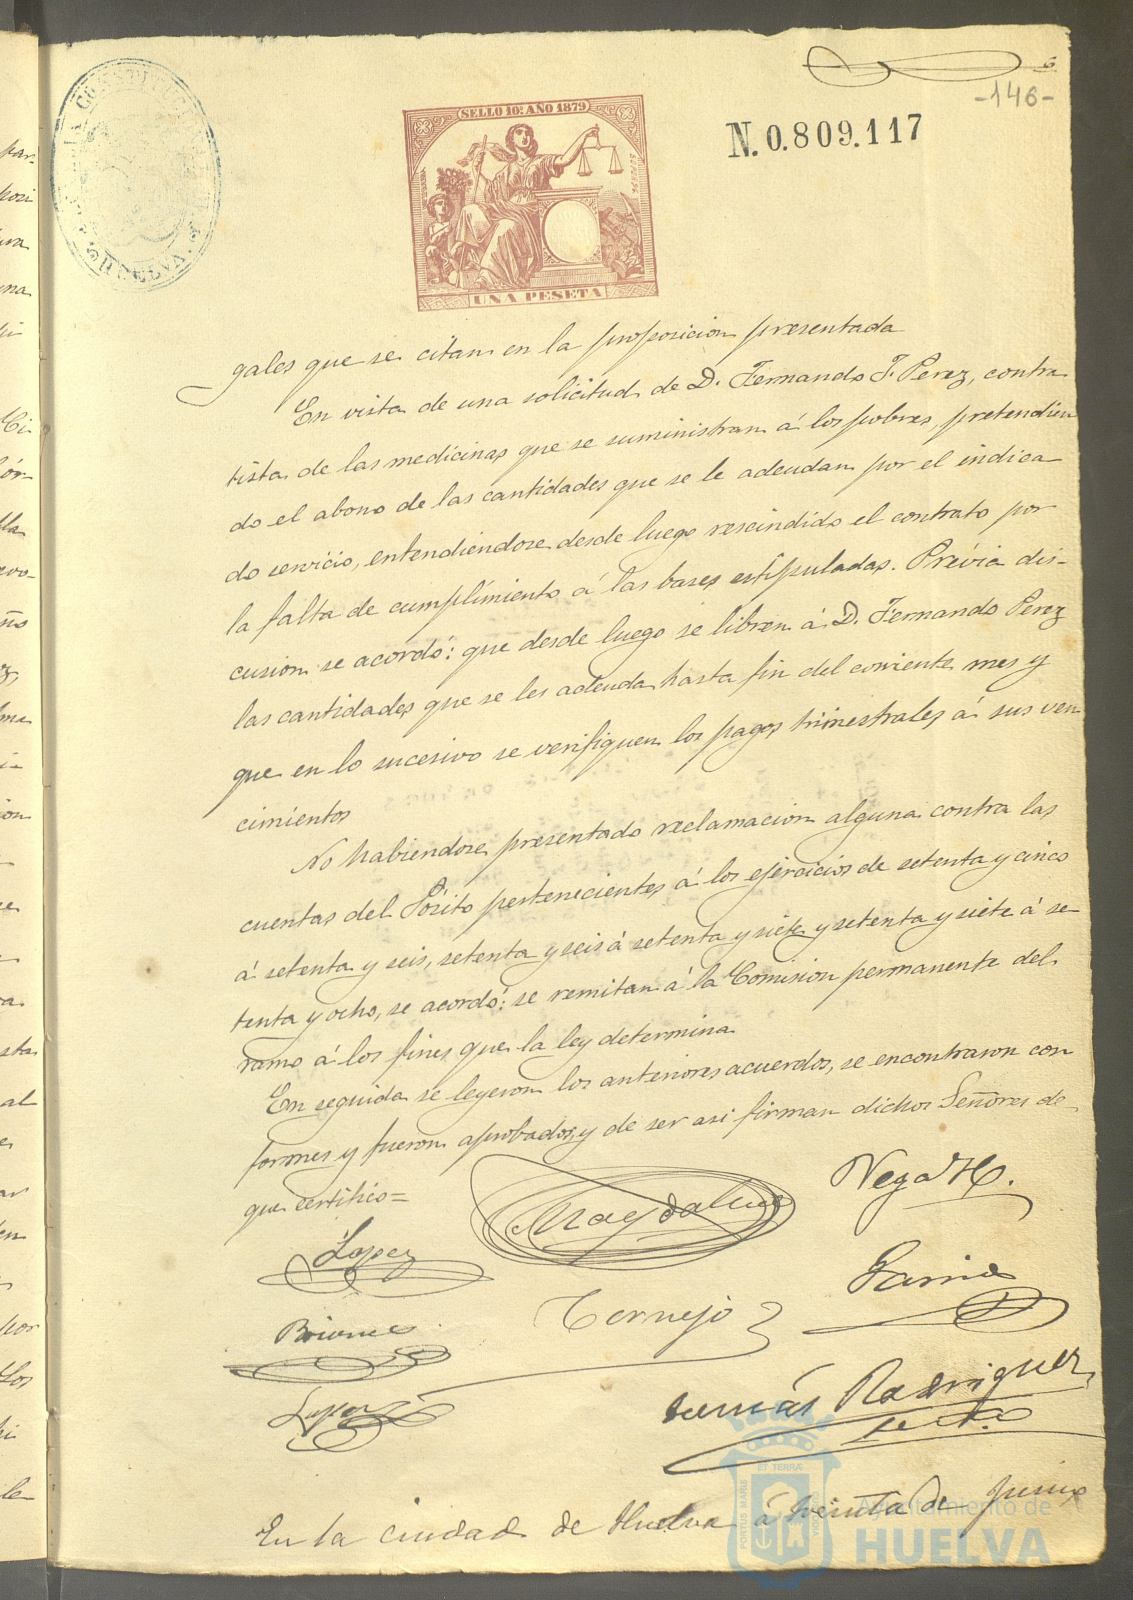 6
-146-
SELLO 10º AÑO 1879
N. 0.809.117
UNA PESETA
HUELVA
gales que se citan en la proposicion presentada
En vista de una solicitud de D. Fernando F. Perez, contra
tista de las medicinas que se suministran á los pobres, pretendien
do el abono de las cantidades que se le adeudan por el indica
do servicio, entendiendose desde luego rescindido el contrato por
la falta de cumplimiento á las bases estipuladas. Prévia dis-
cusion se acordó: que desde luego se libren á D. Fernando Perez
las cantidades que se les adeuda hasta fin del corriente mes y
que en lo sucesivo se verifiquen los pagos trimestrales á sus ven
cimientos
No habiendose presentado reclamacion alguna contra las
cuentas del Pósito pertenecientes á los ejercicios de setenta y cinco
á setenta y seis, setenta y seis á setenta y siete y setenta y siete á se
tenta y ocho, se acordó: se remitan á la Comision permanente del
ramo á los fines que la ley determina
En seguida se leyeron los anteriores acuerdos, se encontraron con
formes y fueron aprobados, y de ser asi firman dichos Señores de
que certifico=
Magdalena
Vega H.
Lopez
Garcia
Briones
Cornejo
Lopez
Tomás Rodriguez
En la ciudad de Huelva á treinta de Junio
Ayuntamiento de
HUELVA